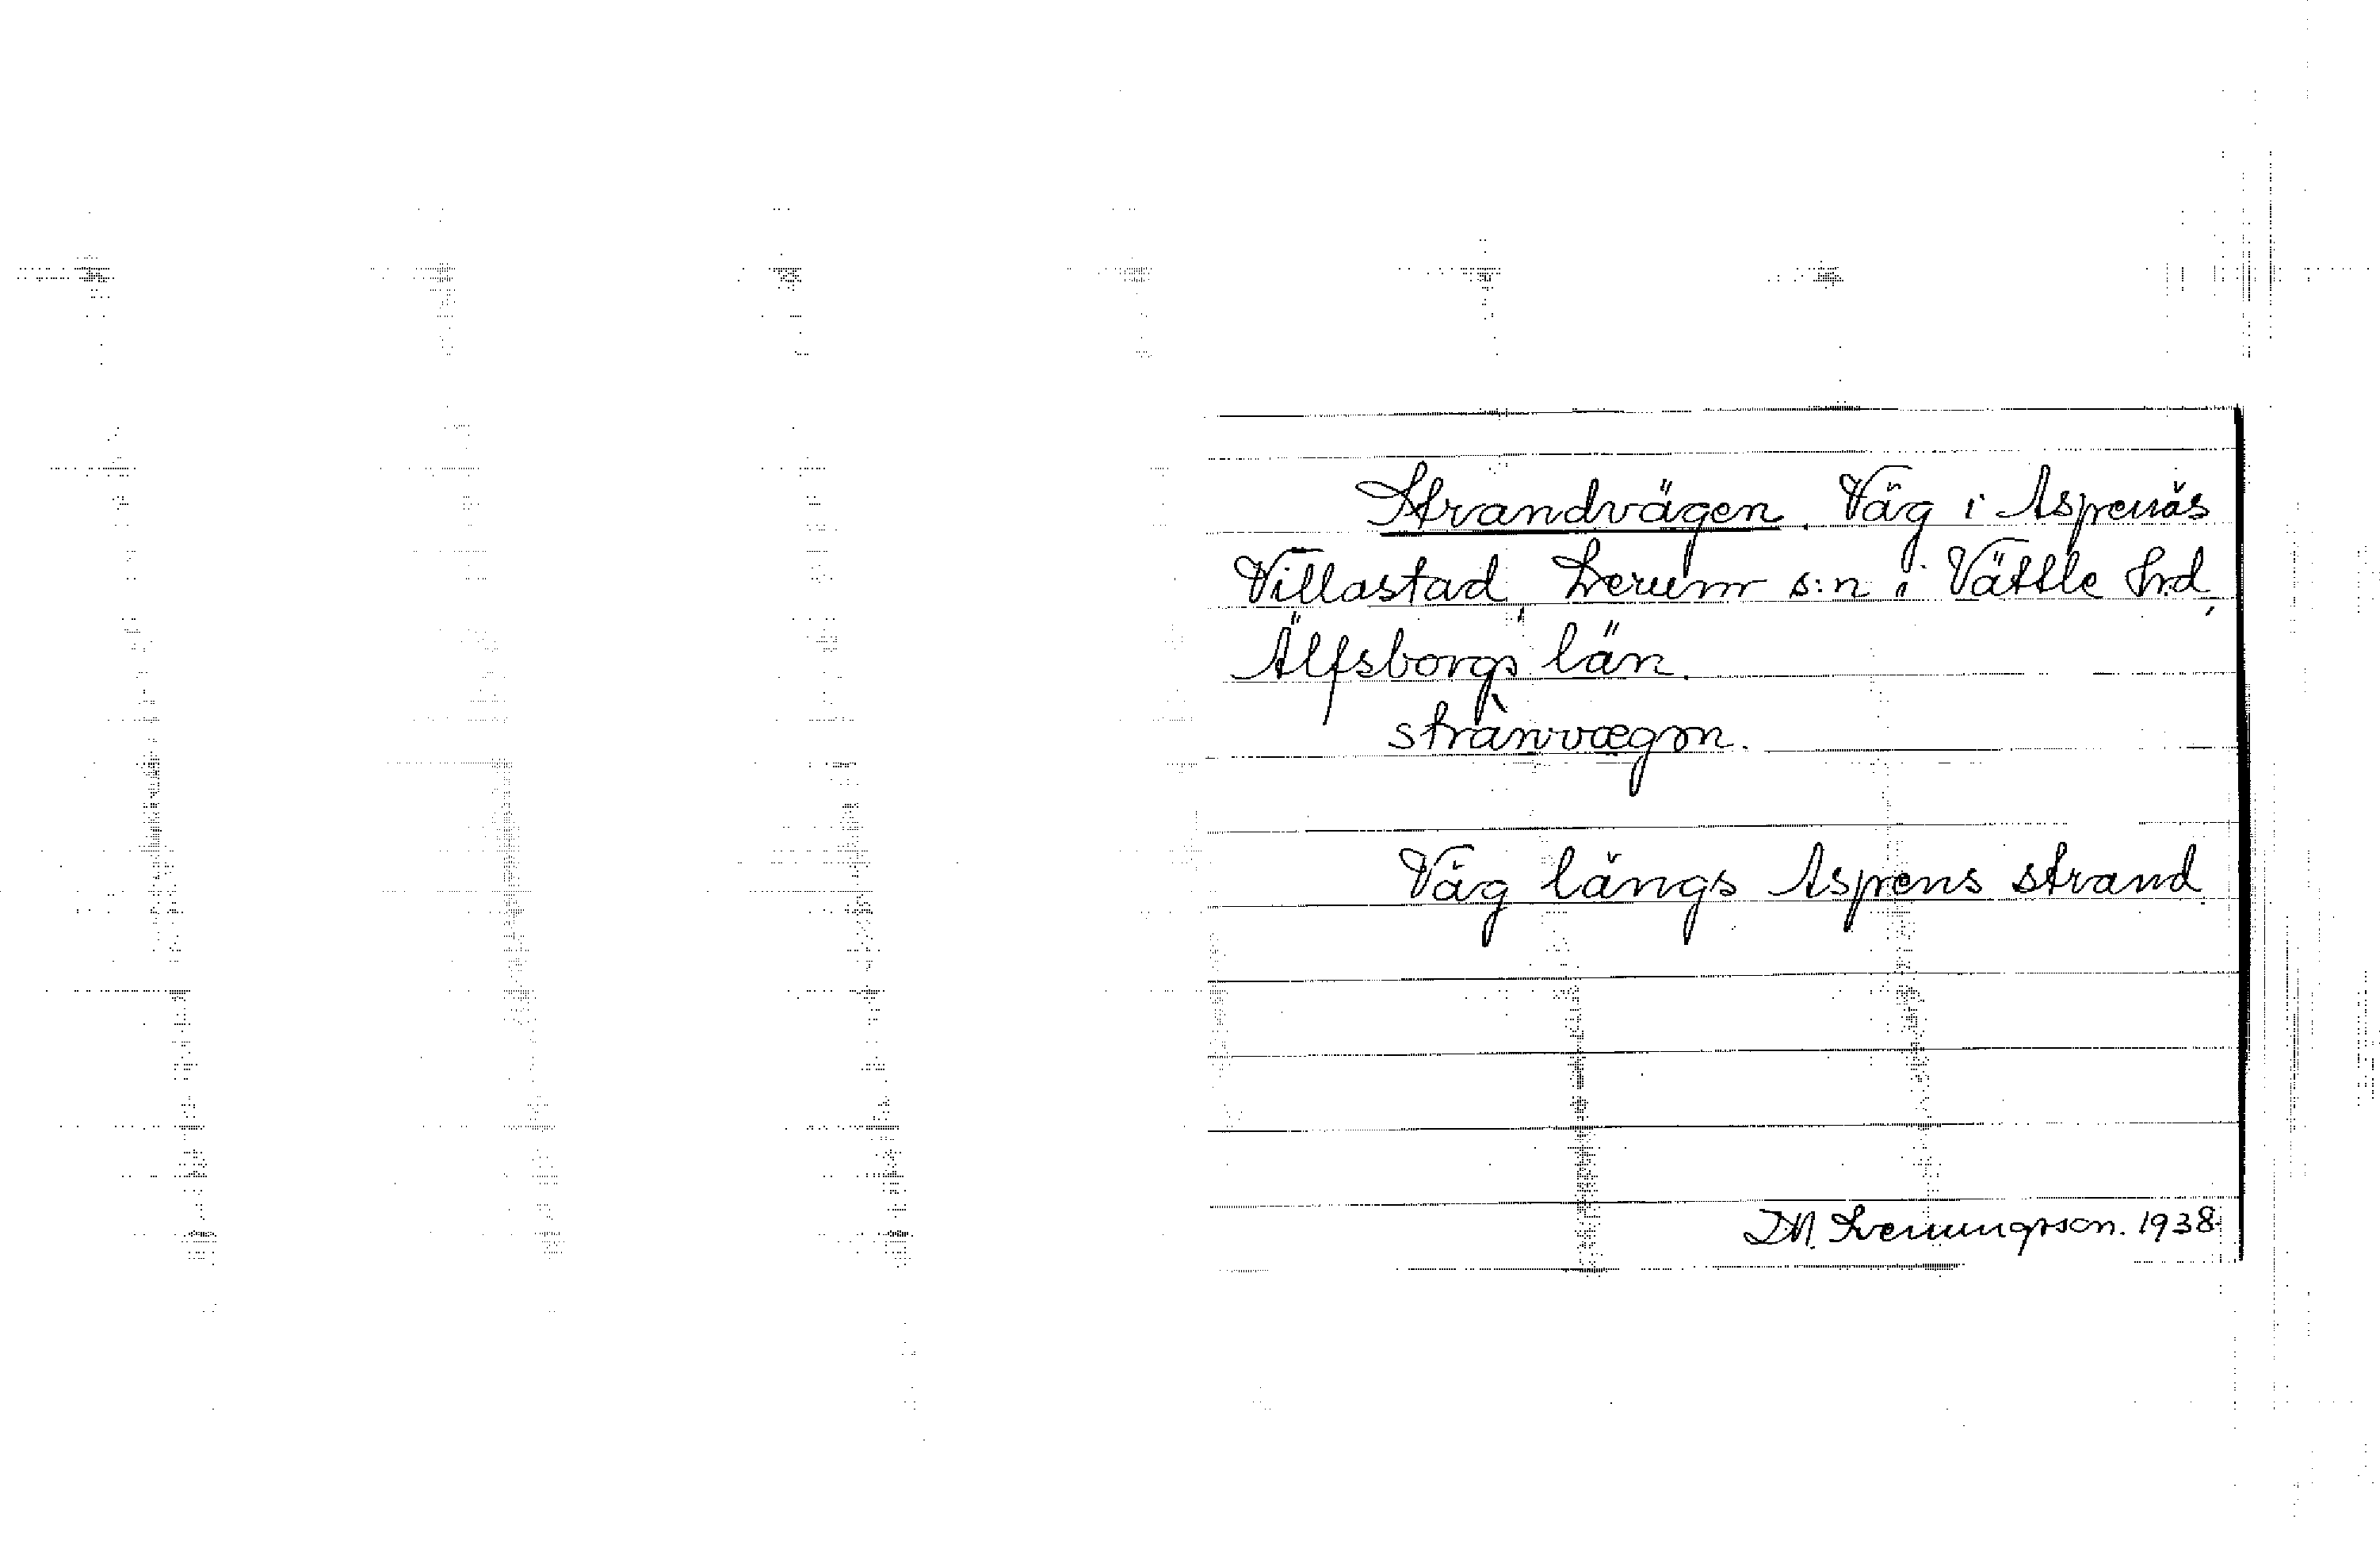 Strandvägen. Väg i Aspenäs
Villastad, Lerum s:n i Vättle hrd,
Älfsborgs län.
strànvægən.
Väg längs Aspens strand.
1938